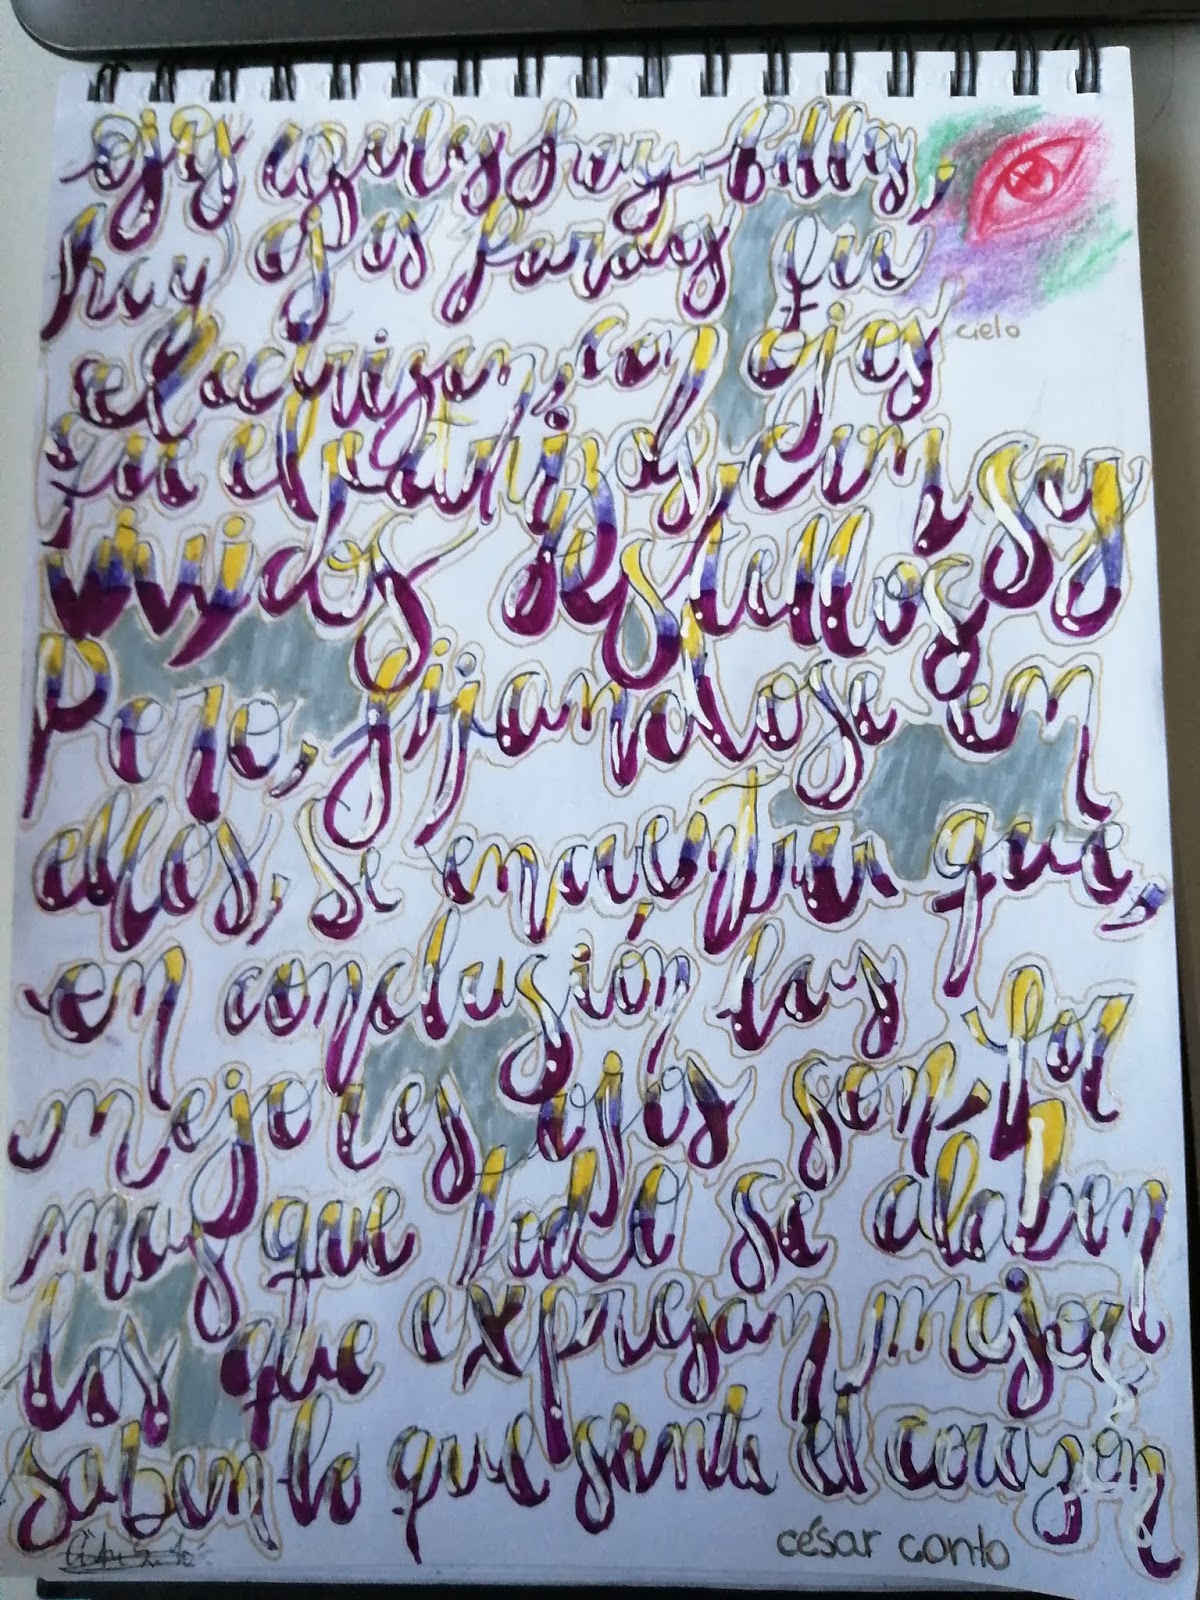 ojos azules hay bellos,
hay ojos pardos que
cielo
electrizan, con ojos
que electrizas, con sus
vividos destellos
Pero, fijandose en
ellos, se encuentra que,
en conclusión las
mejores ojos son, Por
mas que todo se alaben
los que expresan mejor
saben lo que siente el corazón
césar conto